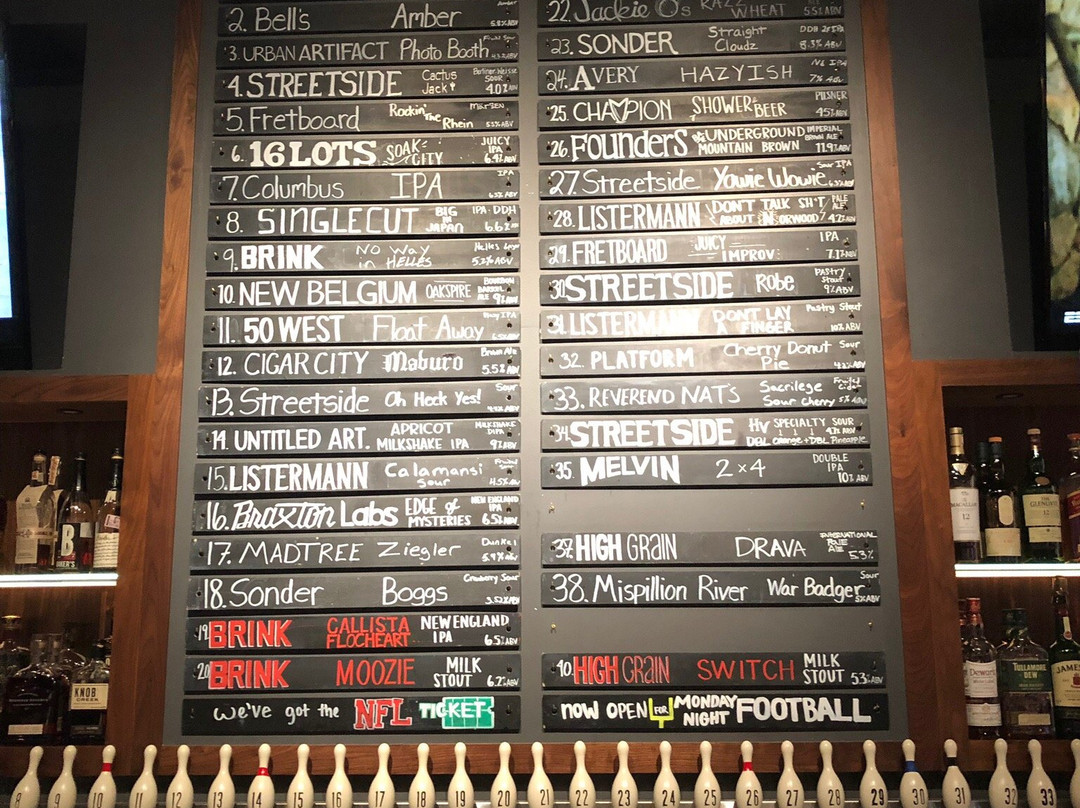 2. Bell's Amber Amber 5.8% ABV
3. URBAN ARTIFACT Photo Booth Fruited Sour
4. STREETSIDE Cactus Jack Berliner Weisse SOUR 4.0% ABV
5. Fretboard Rockin' The Rhein MÄRZEN 5.5% ABV
6. 16 LOTS SOAK CITY JUICY IPA 6.4% ABV
7. Columbus IPA IPA 6.3% ABV
8. SINGLECUT BIG IN JAPAN IPA-DDH 6.6%
9. BRINK NO WAY in HELLES Helles Lager 5.2% ABV
10. NEW BELGIUM OAKSPIRE BOURBON BARREL ALE 9% ABV
11. 50 WEST Float Away IPA
12. CIGAR CITY Maduro Brown Ale 5.5% ABV
13. Streetside Oh Heck Yes! Sour
14. UNTITLED ART. APRICOT MILKSHAKE IPA MILKSHAKE DIPA 9% ABV
15. LISTERMANN Calamansi Sour Fruited Sour 4.5% ABV
16. Braxton Labs EDGE of MYSTERIES NEW ENGLAND IPA 6.5% ABV
17. MADTREE Ziegler Dunkel 5.9% ABV
18. Sonder Boggs Cranberry Sour 3.52% ABV
19. BRINK CALLISTA FLOCHEART NEW ENGLAND IPA 6.5% ABV
20. BRINK MOOZIE MILK STOUT 6.2% ABV
we've got the NFL TICKET
22. Jackie O's RAZZ WHEAT 5.5% ABV
23. SONDER Straight Cloudz DDH 2x IPA 8.3% ABV
24. AVERY HAZYISH NE IPA 7% ABV
25. CHAMPION SHOWER BEER PILSNER 4.5% ABV
26. FOUNDERS UNDERGROUND MOUNTAIN BROWN IMPERIAL BROWN ALE 11.9% ABV
27. Streetside Yowie Wowie Sour IPA
28. LISTERMANN DON'T TALK SH*T ABOUT NORWOOD PALE ALE 4.2% ABV
29. FRETBOARD JUICY IMPROV IPA 7.1% ABV
30. STREETSIDE Robe PASTRY Stout 9% ABV
31. LISTERMANN DON'T LAY A FINGER Pastry Stout 10% ABV
32. PLATFORM Cherry Donut Pie Sour
33. REVEREND NAT'S Sacrilege Sour Cherry Fruited Cider 5% ABV
34. STREETSIDE HV SPECIALTY SOUR DBL Orange + DBL Pineapple
35. MELVIN 2x4 DOUBLE IPA 10% ABV
37. HIGH GRAIN DRAVA INTERNATIONAL PALE ALE 5.3%
38. Mispillion River War Badger Sour 5% ABV
40. HIGH GRAIN SWITCH MILK STOUT 5.3% ABV
NOW OPEN FOR MONDAY NIGHT FOOTBALL
KNOB CREEK
TULLAMORE DEW
8 9 10 11 12 13 14 15 16 17 18 19 20 21 22 23 24 25 26 27 28 29 30 31 32 33